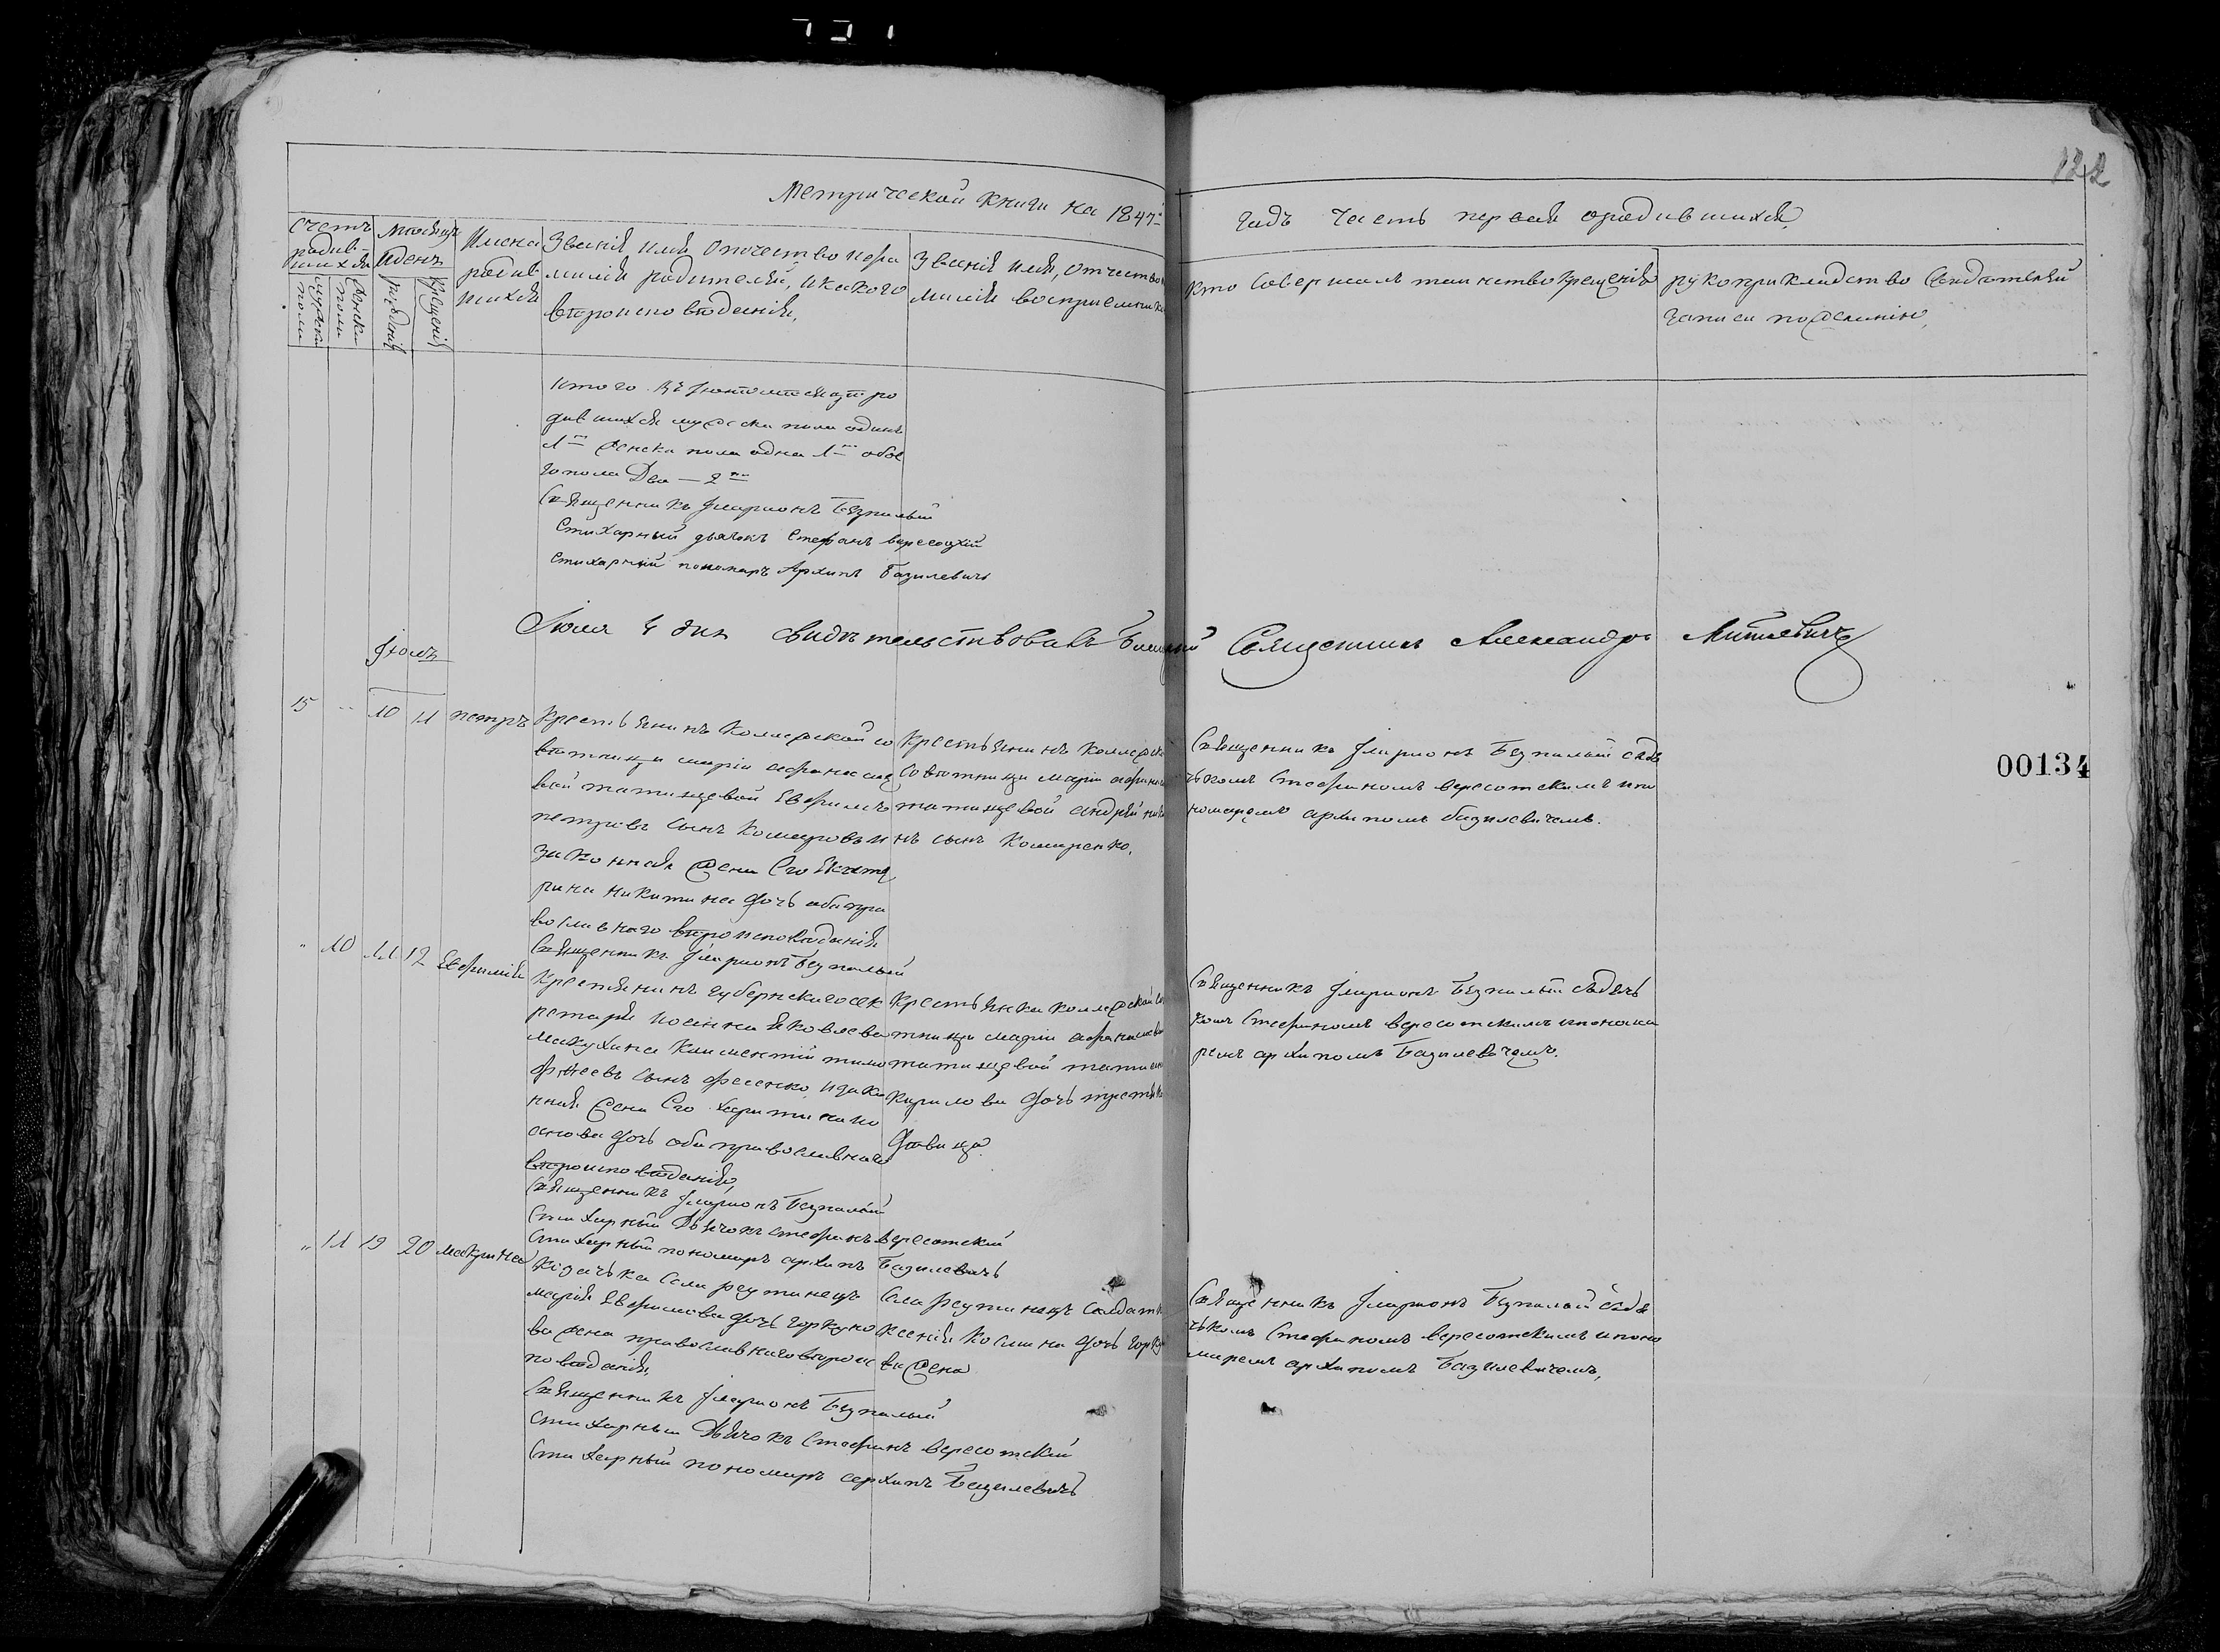 122
Метрической книги на 1847й
годъ часть первая о родившихся,
счетъ
родив-
шихся
мужеска
пола
женска
пола
Месяцъ
и день
рождения
крещенія
Имена
родив
шихся
Званія имя Отчество и фа
милія родителей, и какого
вѣроисповѣданія,
Званія имя, отчество
милія восприемнико
кто совершалъ таинство крещенія
рукоприкладство свидѣтелей
записи по желанію,
итого въ юнѣ месяцѣ ро
дившихся мужеска пола одинъ
1 женска пола одна 1 обое
го пола Два — 2
Священникъ Иларионъ Безпалый
Стихарный дьячокъ Стефанъ Вересоцкій
Стихарный пономаръ Архипъ Базилевичъ
Іюля 4 дня свидѣтельствовалъ Благочинный Священникъ Александръ
Іюль
15 " 10 11 петръ
Крестьянинъ Колежской со
вѣтници маріи афанасіе
вой татищевой Евфимъ
петровъ сынъ Комаровъ и
законная жена Его Екате
рина никитина дочь оба пра
вославнаго вѣроисповѣданія
Священникъ Иларионъ Безпалый
Крестьянинъ Колежской
Совѣтници маріи афанас
татищевой андрей
нъ сынъ Комаренко.
Священникъ Иларионъ Безпалый съ дь
ячкомъ Стефаномъ вересотскимъ и по
номаремъ архипомъ базилевичемъ.
00134
" 10 11 12 Евфимія
Крестянинъ губернскаго сек
ретаря иоанна яковлева
макухина Климентій тимо
фѣевъ сынъ фесенко, и зако
нная жена Его харитина
анова дочь оба православнаго
вѣроисповѣданія,
Священникъ Иларионъ Безпалый
Стихарный Дьячокъ Стефанъ вересотский
Стихарный пономаръ архипъ Базилевичь
Крестьянка колежской со
тници маріи афанасиево
татищевой татиана
кирилова дочь
дѣвица.
Священникъ Иларионъ Безпалый съ дьяч
комъ Стефаномъ вересотскимъ и понома
ремъ архипомъ Базилевичемъ.
" 11 19 20 макрина
Козачька села реутинецъ
марія Евфимова дочь горкуно
ва жена православнаго вѣроис
повѣданія,
Священникъ Иларионъ Безпалый
стихарный Дьячокъ Стефанъ вересотский
Стихарный пономаръ архипъ Базилевичь
села реутинецъ солдатк
ксенія космина дочь горку
ва жена
Священникъ Иларионъ Безпалый съ дья
чькомъ Стефаномъ вересотскимъ и поно
маремъ архипомъ Базилевичемъ,